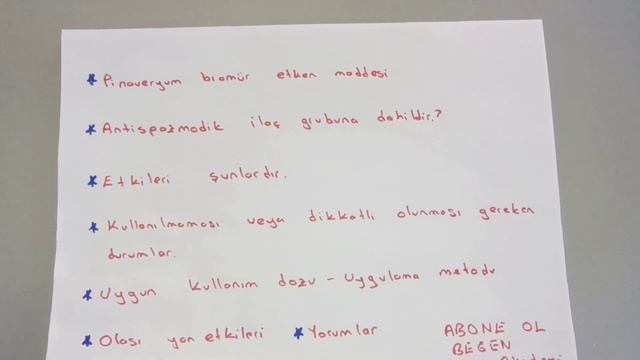 * Pinaveryum bromür etken maddesi
* Antispazmodik ilaç grubuna dahildir.?
* Etkileri şunlardır.
* Kullanılmaması veya dikkatli olunması gereken
durumlar.
* Uygun kullanım dozu - Uygulama metodu
* Olası yan etkileri * Yorumlar
ABONE OL
BEGEN